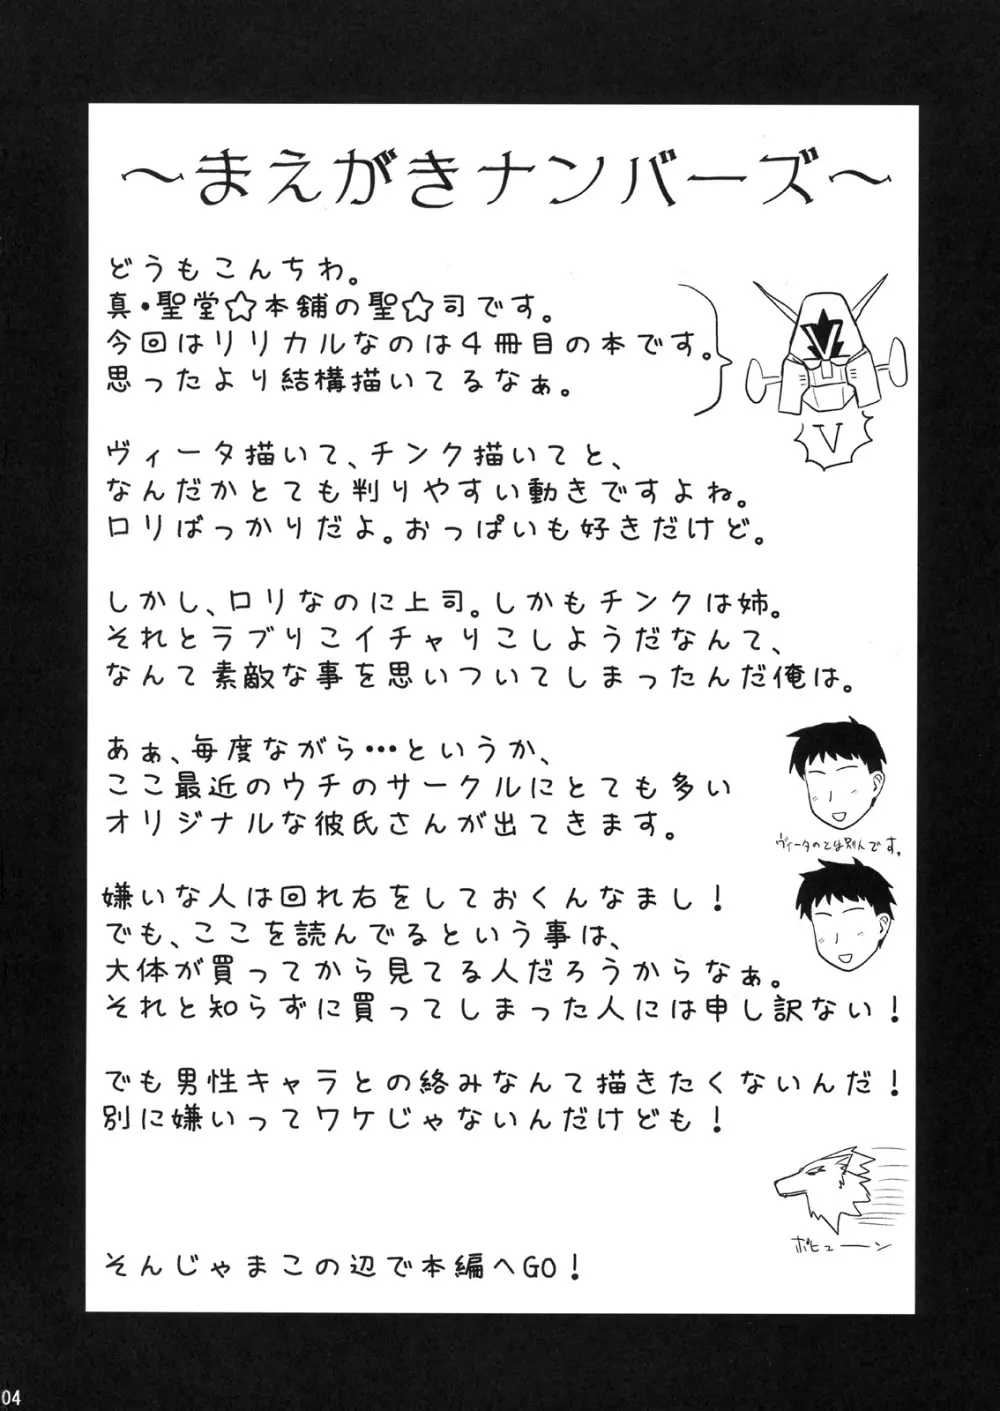 ～まえがきナンバーズ～
どうもこんちわ。
真・聖堂☆本舗の聖☆司です。
今回はリリカルなのは４冊目の本です。
思ったより結構描いてるなぁ。
V
V
ヴィータ描いて、チンク描いてと、
なんだかとても判りやすい動きですよね。
ロリばっかりだよ。おっぱいも好きだけど。
しかし、ロリなのに上司。しかもチンクは姉。
それとラブりこイチャりこしようだなんて、
なんて素敵な事を思いついてしまったんだ俺は。
あぁ、毎度ながら…というか、
ここ最近のウチのサークルにとても多い
オリジナルな彼氏さんが出てきます。
ヴィータのとは別人です。
嫌いな人は回れ右をしておくんなまし！
でも、ここを読んでるという事は、
大体が買ってから見てる人だろうからなぁ。
それと知らずに買ってしまった人には申し訳ない！
でも男性キャラとの絡みなんて描きたくないんだ！
別に嫌いってワケじゃないんだけども！
ボヒューン
そんじゃまこの辺で本編へGO！
04